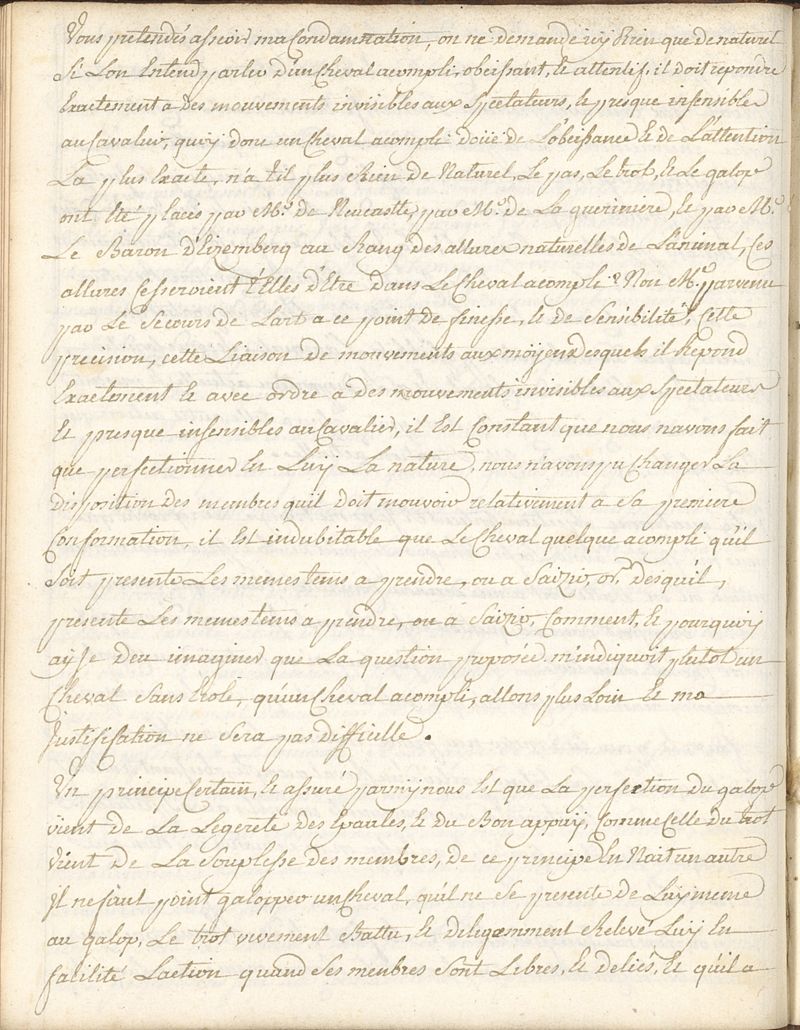 Vous pretendés asseoir ma Condamnation, on ne demande icy Rien que de naturel
Si Lon Entend parler d'un Cheval acompli, obeissant, & attentif, il doit repondre
Exactement a Des mouvements invisibles aux Spectateurs, & presque insensible
au Cavalier, quoy donc un Cheval acompli doüé de L'obeissance & de L'attention
La plus Exacte, n'a t'il plus Rien de Naturel, Le pas, Le trot, & Le galop
ont Eté placés par Mr. de Neucastle, par Mr. de La queriniere, & par Mr.
Le Baron d'Eizemberg au Rang des allures naturelles de L'animal, Ces
allures Cesseroient t'Elles d'Etre dans Le Cheval acompli? Non Mr. parvenu
par Le Secours de Lart a ce point de finesse, & de Sensibilité, Cette
precision, cette Liaison de mouvements aux moÿens desquels il Repond
Exactement & avec ordre a des mouvements invisibles aux Spectateurs
Et presque insensibles au Cavalier, il Est Constant que nous navons fait
que perfectionner En Luy La nature, nous n'avons pu Changer La
disposition des membres quil doit mouvoir relativement a Sa premiere
Conformation, il Est indubitable que Le Cheval quelque acompli qu'il
Soit presente Les memes tems a prendre, ou a Saizir, or, Desquil,
presente Les memes tems a prendre, ou à Saizir, Comment, & pourquoy
ay Je deu imaginer que La question proposée m'indiquoit plutot un
Cheval Sans Ecole, qu'un Cheval acompli, allons plus Loin & ma
Justification ne Sera pas difficille.
Un principe Certain, & assuré parmy nous Est que La perfection du galop
vient de La Legereté des Epaules, & du Bon appuy, Comme Celle du trot
Vient de La Souplesse des membres, de ce principe En Nait un autre
Il ne faut point galopper un Cheval, quil ne Se presente de Luy meme
au galop, Le trot vivement Battu, & diligemment Relevé Luy En
facilité Laction quand Ses menbres Sont Libres, & deliés, & qu'il a